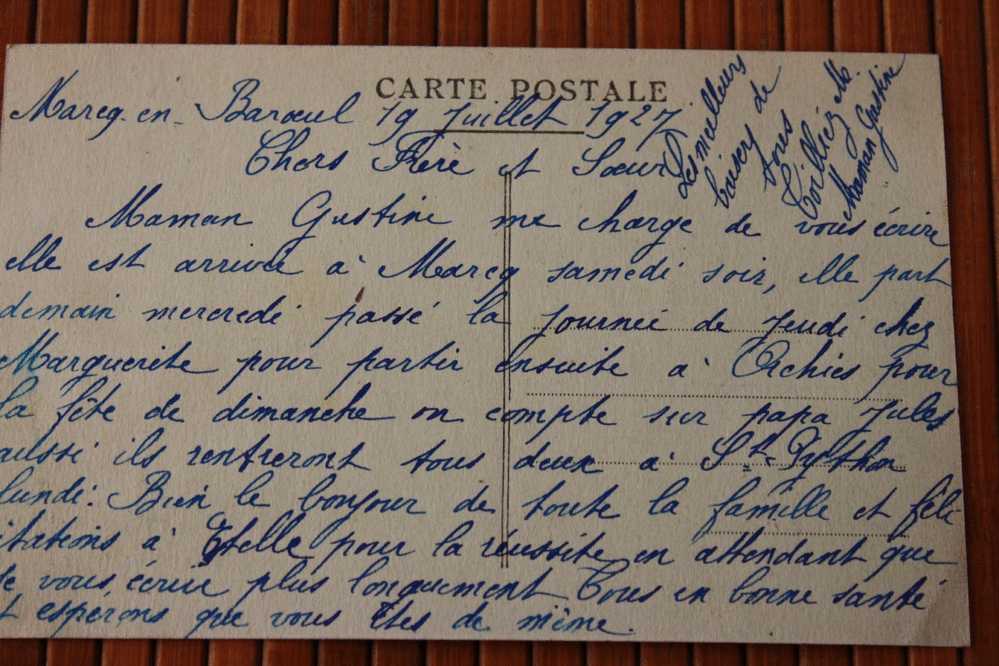 CARTE POSTALE
Marcq-en-Barœul 19 Juillet 1927
Chers Frère et Sœur
Maman Gustine me charge de vous écrire
elle est arrivée à Marcq samedi soir, elle part
demain mercredi passé la journée de Jeudi chez
Marguerite pour partir ensuite à Orchies pour
la fête de dimanche on compte sur papa Jules
aussi ils rentreront tous deux à St-Python
lundi. Bien le bonjour de toute la famille et féli
citations à Etelle pour la réussite en attendant que
je vous écrire plus longuement Tous en bonne santé
et espérons que vous êtes de même.
Les meilleurs
baisers de
tous
M.
Maman Gustine